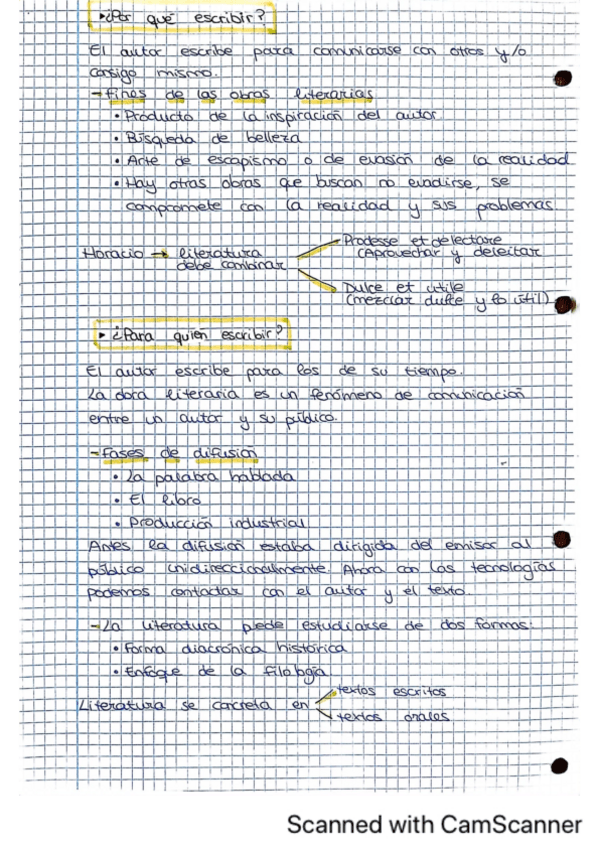 • ¿Por qué escribir?
El autor escribe para comunicarse con otros y/o
consigo mismo.
- Fines de las obras literarias
• Producto de la inspiración del autor.
• Búsqueda de belleza
• Arte de escapismo o de evasión de la realidad
• Hay otras obras que buscan no evadirse, se
compromete con la realidad y sus problemas.
Horacio → literatura
debe combinar
Prodesse et delectare
(Aprovechar y deleitar
Dulce et utile
(mezclar dulce y lo útil)
• ¿Para quién escribir?
El autor escribe para los de su tiempo.
La obra literaria es un fenómeno de comunicación
entre un autor y su público.
- Fases de difusión
• La palabra hablada
• El libro
• Producción industrial
Antes la difusión estaba dirigida del emisor al
público unidireccionalmente. Ahora con las tecnologías
podemos contactar con el autor y el texto.
- La literatura puede estudiarse de dos formas:
• Forma diacrónica histórica
• Enfoque de la filología
Literatura se concreta en
textos escritos
textos orales
Scanned with CamScanner